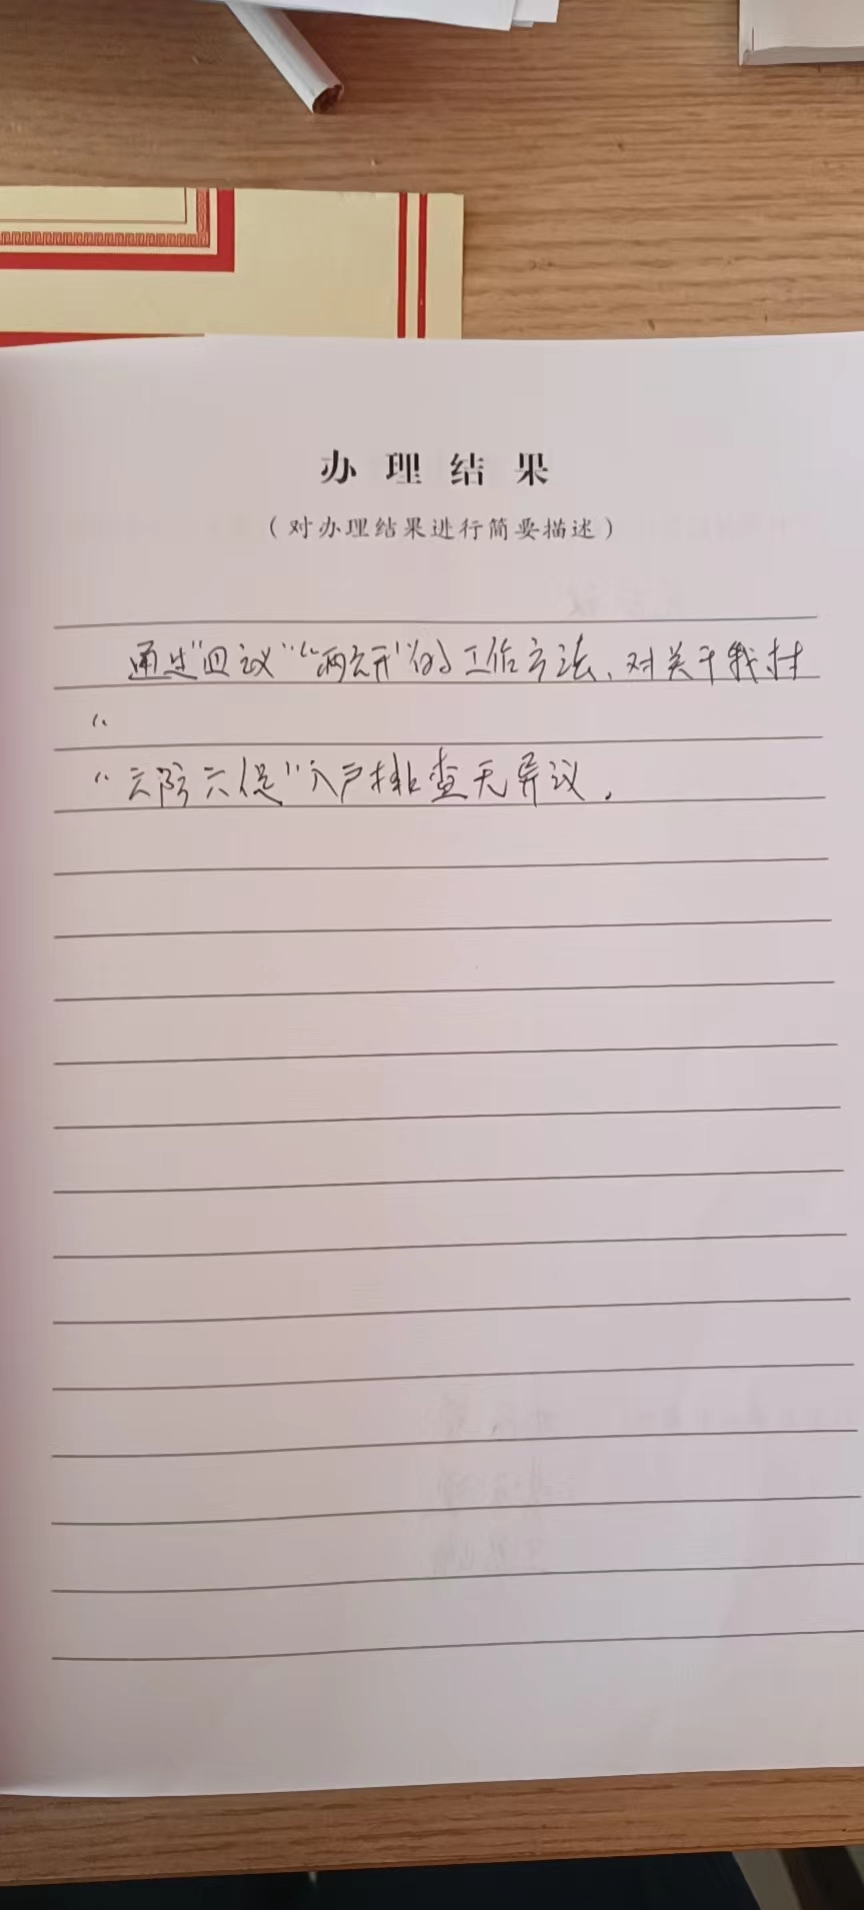 办理结果
（对办理结果进行简要描述）
通过"四议""两公开"的工作方法、对关于我村
"
"六防六促"入户排查无异议.